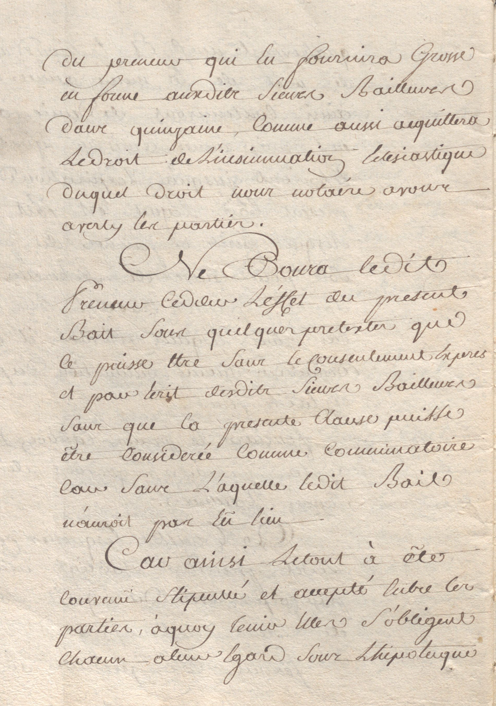 du preneur qui En fournira Grosse
en forme auxdits Sieurs Bailleurs
dans quinzaine, Comme aussi acquittera
Le droit de L'insinuation Eclesiastique
duquel droit nous notaire avons
averty les parties.
Ne Poura ledit
Preneur Ceder L'effet du present
Bail sous quelques pretextes que
ce puisse Etre sans le Consentement Expres
et par Ecrit desdits Sieurs Bailleurs
sans que la presente Clause puisse
être Considerée Comme Comminatoire
Car sans L'aquelle ledit Bail
n'auroit pas Eü lieu
Car ainsi Letout à été
Convenu Stipullé et accepté Entre les
parties, à quoy tenir Elles S'obligent
Chacun a leur Egard sous L'hipoteque